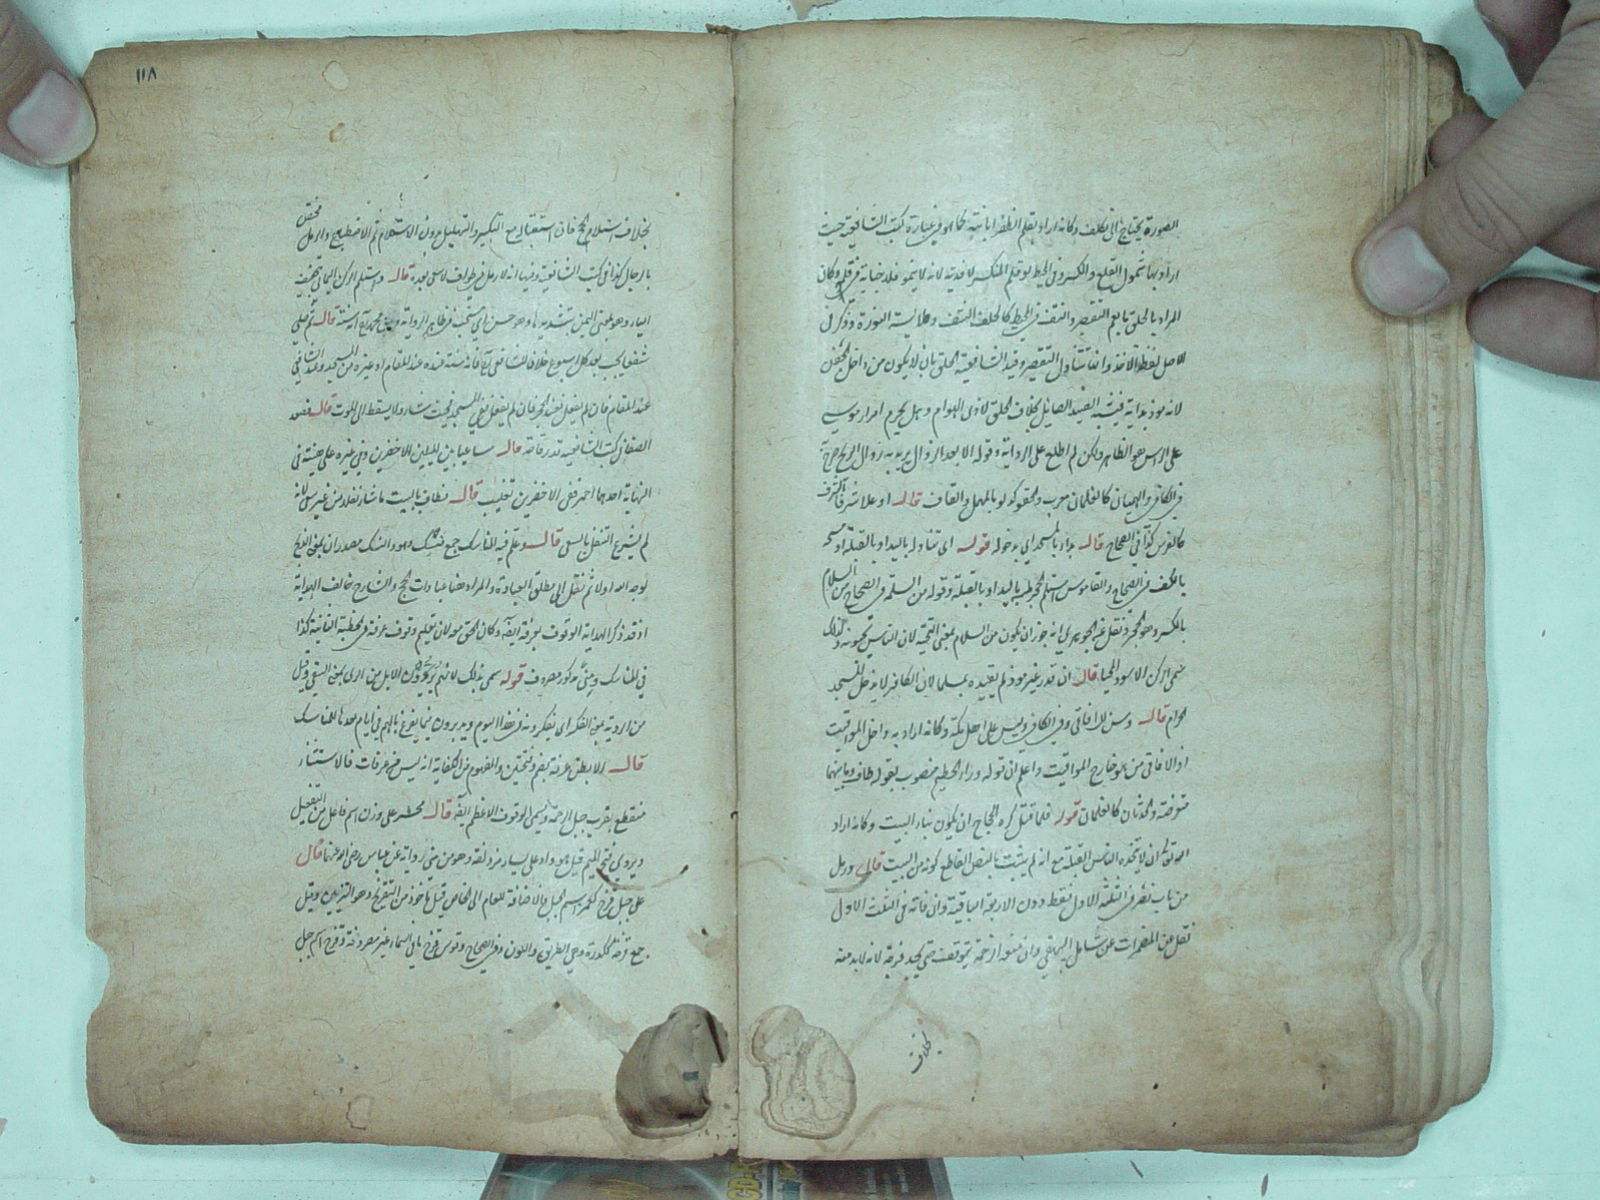 الصورة يحتاج الى تكلف وكانه اراد بقلم الظفر ابانته كما هو في عبارة كتب الشافعية حيث
ارادوا بها شمول القلع والكسر وفي المحيط لو قلم المنكسر لا فدية لانه لا ينمو فلا جناية في قلمه وكان
المراد بالحلق ما يعم التقصير والنتف ففي المحيط كالحلق النتف
للاصل لفظ الاخذ وانما يتناول التقصير وقيد الشافعية الحلق بان لا يكون من داخل الجفن
لانه موذ بذاته فيشبه الصيد الصائل بخلاف الحلق لاذى الهوام وهل يحرم امرار موسى
على الراس هو الظاهر ولكن لم اطلع على الرواية وقوله الا بعد الزوال يريد به زوال الريح
في الكافي والهميان كالغلمان معرب والحقو كدلو بالمهملة والقاف قال او علا شرفا الشرف
كالفرس كذا في الصحاح قال بدا بالمسجد اي بدخوله قوله اي تناوله باليد او بالقبلة او مسحه
بالكف في الصحاح والقاموس استلم الحجر لمسه باليد او بالقبلة وقوله من السلمة في الصحاح من السلام
بالكسر وهو الحجر ونقل عنه الجوهري انه جوز ان يكون من السلام بمعنى التحية لان الناس يحيونه ولذلك
سمي الركن الاسود المحيا قال ان قدر غير موذ لم يقيده بمسلما لان الكافر لا يدخل المسجد
الحرام قال وسن للافاقي وفي الكافي وليس على اهل مكة وكانه اراد به داخل المواقيت
اذ الافاقي من هو خارج المواقيت واعلم ان قوله وراء الحطيم منصوب بقوله طاف وما بينهما
معترضة والحدثان كالغلمان قوله فلما قتل كره الحجاج ان يكون بناء البيت وكانه اراد
انه تعالى ان لا يتخذه الناس القبلة مع انه لم يثبت بالنص القاطع كونه من البيت قال ورمل
من باب نصر في الثلثة الاول فقط دون الاربعة الباقية وان فاته في الثلث الاول
نقل عن المضمرات عن شامل البيهقي وان منعه الزحمة يتوقف حتى يجد فرجة لانه لا بد منه
بخلاف
١١٨
بخلاف استلام الحجر فان استقباله مع التكبير والتهليل بدون الاستلام ثم الاضطباع والرمل مختص
بالرجال كذا في كتب الشافعية وفيها انه لا رمل في طواف لا سعي بعده قال ويستلم الركن اليماني بتخفيف
الياء وهو بمعنى اليمن تشديدها وهو حسن اي مستحب في ظاهر الرواية وعن محمد انه سنة قال ثم صلى
شفعا يجب بعد كل اسبوع خلافا للشافعي فانه سنة عنده عند المقام او غيره من المسجد وعند الشافعي
عند المقام فان لم يفعل ففي الحجر فان لم يفعل ففي المسجد فحيث شاء ولا يسقط الى الموت قال فصعد
الصفا في كتب الشافعية قدر قامة قال ساعيا بين الميلين الاخضرين وفي غيره على هيئته في
النهاية احدهما احمر ففي الاخضرين تغليب قال فطاف بالبيت ما شاء نفلا من غير سعي لانه
لم يشرع التنفل بالسعي قال وعلم فيه المناسك جمع منسك وهو والنسك مصدران بمعنى الذبح
لوجه الله اولا ثم نقل الى مطلق العبادة والمراد هنا عبادات الحج والشارح خالف الهداية
اذ قد ذكر الهداية الوقوف بعرفة ايضا وكان الحق معه لان تعليم وقوف عرفة في الخطبة الثانية كذا
في المناسك ومنى مذكور مصروف قوله سمي بذلك لانهم يروون الابل من اروى بمعنى السقي وقيل
من الروية بمعنى الفكر اي يفكرون في هذا اليوم ويدبرون فيما يفرغ بالهم في ايام بعدها للمناسك
قال الا بطن عرنة بضم وفتحتين والمفهوم من الكفاية انه ليس من عرفات فالاستثناء
منقطع بقرب جبل الرحمة ويسمى الوقوف الاعظم ايضا قال محسر على وزن اسم فاعل من التفعيل
ويروى بفتح السين قيل هو واد على يسار مزدلفة وهو من منى رواية عن عباس رضي الله عنهما قال
على جبل قزح كعمر اسم الجبل فالاضافة للعام الى الخاص قيل ماخوذ من التقزيح وهو التزيين وقيل
جمع قزحة كغدرة وهي الطريق واللون وفي الصحاح وقوس قزح بالسماء غير مصروفة وقزح اسم جبل